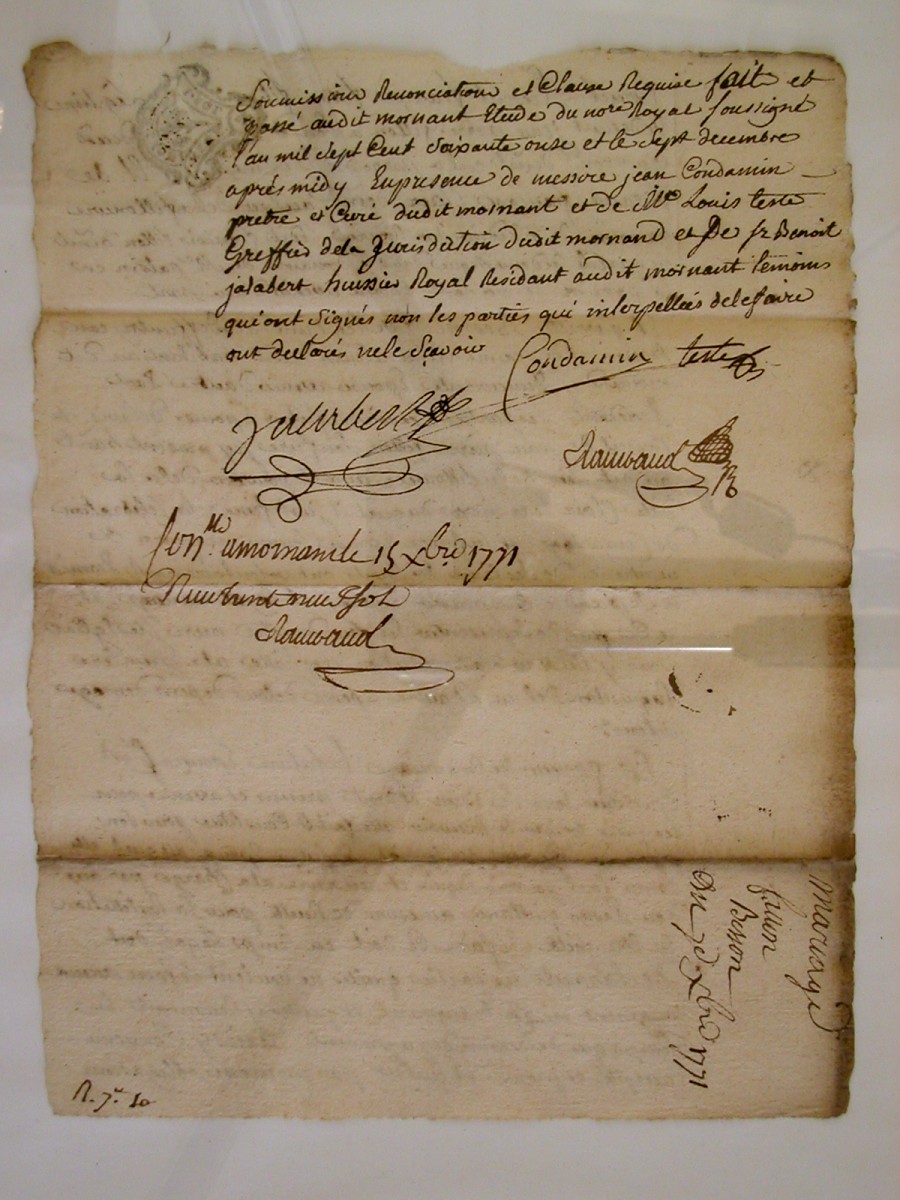 Soumission Renonciation et Clause Requise fait et
passé audit mornant Etude du nore Royal soussigné
l'an mil sept Cent soixante onse et le sept decembre
aprés midy En presence de messire jean Condamin
pretre et Curé dudit mornant et de Me Louis teste
Greffier de la Jurisdiction dudit mornand et De sr Benoit
jalabert huissier Royal Residant audit mornant temoins
qui ont signés non les parties qui interpellées de le faire
ont declarés ne le sçavoir
Condamin teste
Jalabert
Ravivaud
Con.lle a mornant le 15 xbre 1771
Ravivaud
Mariage
Besson
Du 7e xbre 1771
R. 7.